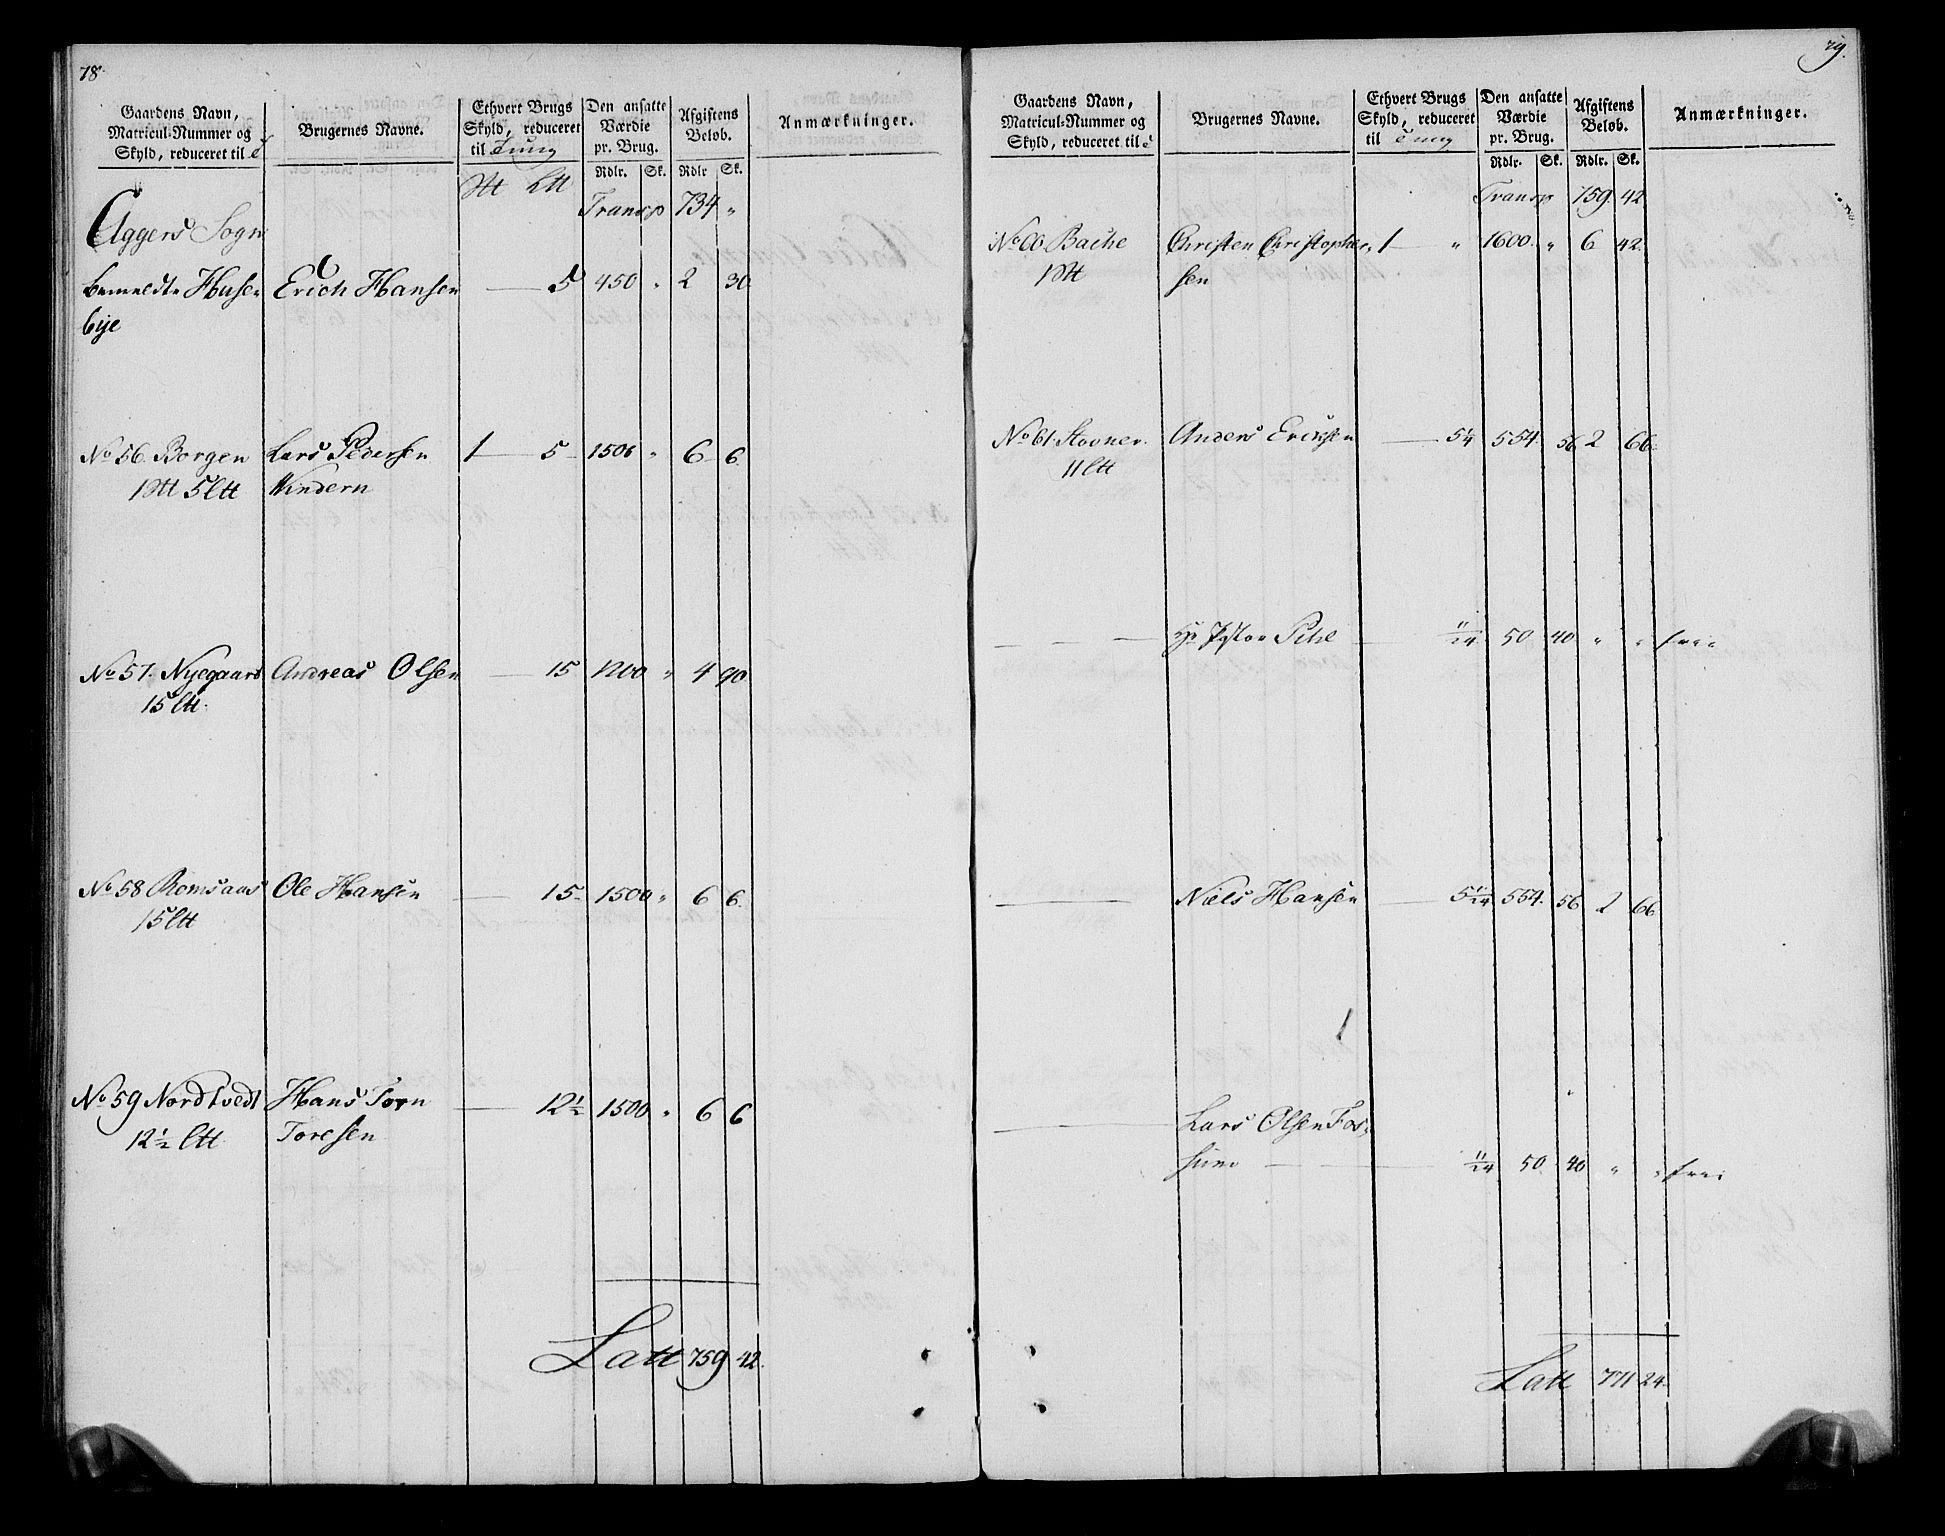 78.
Gaardens Navn,
Matricul-Nummer og
Skyld, reduceret til
Brugernes Navne.
Ethvert Brugs
Skyld, reduceret
til Tung
Den ansatte
Værdie
pr. Brug.
Afgiftens
Beløb.
Anmærkninger.
Rdlr. Sk. Rdlr Sk.
Transp 734 "
Aggers Sogn
bemeldte Huse
bye
Erich Hansen — 5 450 " 2 30
No 56. Borgen Lars Pedersen 1 — 5 1506 " 6 6
5 Ltt Vindern
No 57. Nyegaard Andreas Olsen — 15 1200 " 4 90
15 Ltt.
No 58 Romsaas Ole Hansen — 15 1500 " 6 6
15 Ltt
No 59 Nordtvedt Hans Torn — 12½ 1500 " 6 6
12½ Ltt Toresen
Latt 759 42.
79.
Gaardens Navn,
Matricul-Nummer og
Skyld, reduceret til
Brugernes Navne.
Ethvert Brugs
Skyld, reduceret
til Tung
Den ansatte
Værdie
pr. Brug.
Afgiftens
Beløb.
Anmærkninger.
Rdlr. Sk. Rdlr. Sk.
Transp 759 42
No 60. Bache Christen Christopher- 1 — " 1600 " 6 42
sen
No 61. Stovner Anders Ericksen — 5¼ 554. 56 2 66
11 Ltt
— Pihl — 11/24 50 40 " " frie
— Niels Hansen — 5 1/24 554. 56 2 66
— Lars Olsen Fos-
sum — 11/24 50 40 " " frie
Latt 771 24